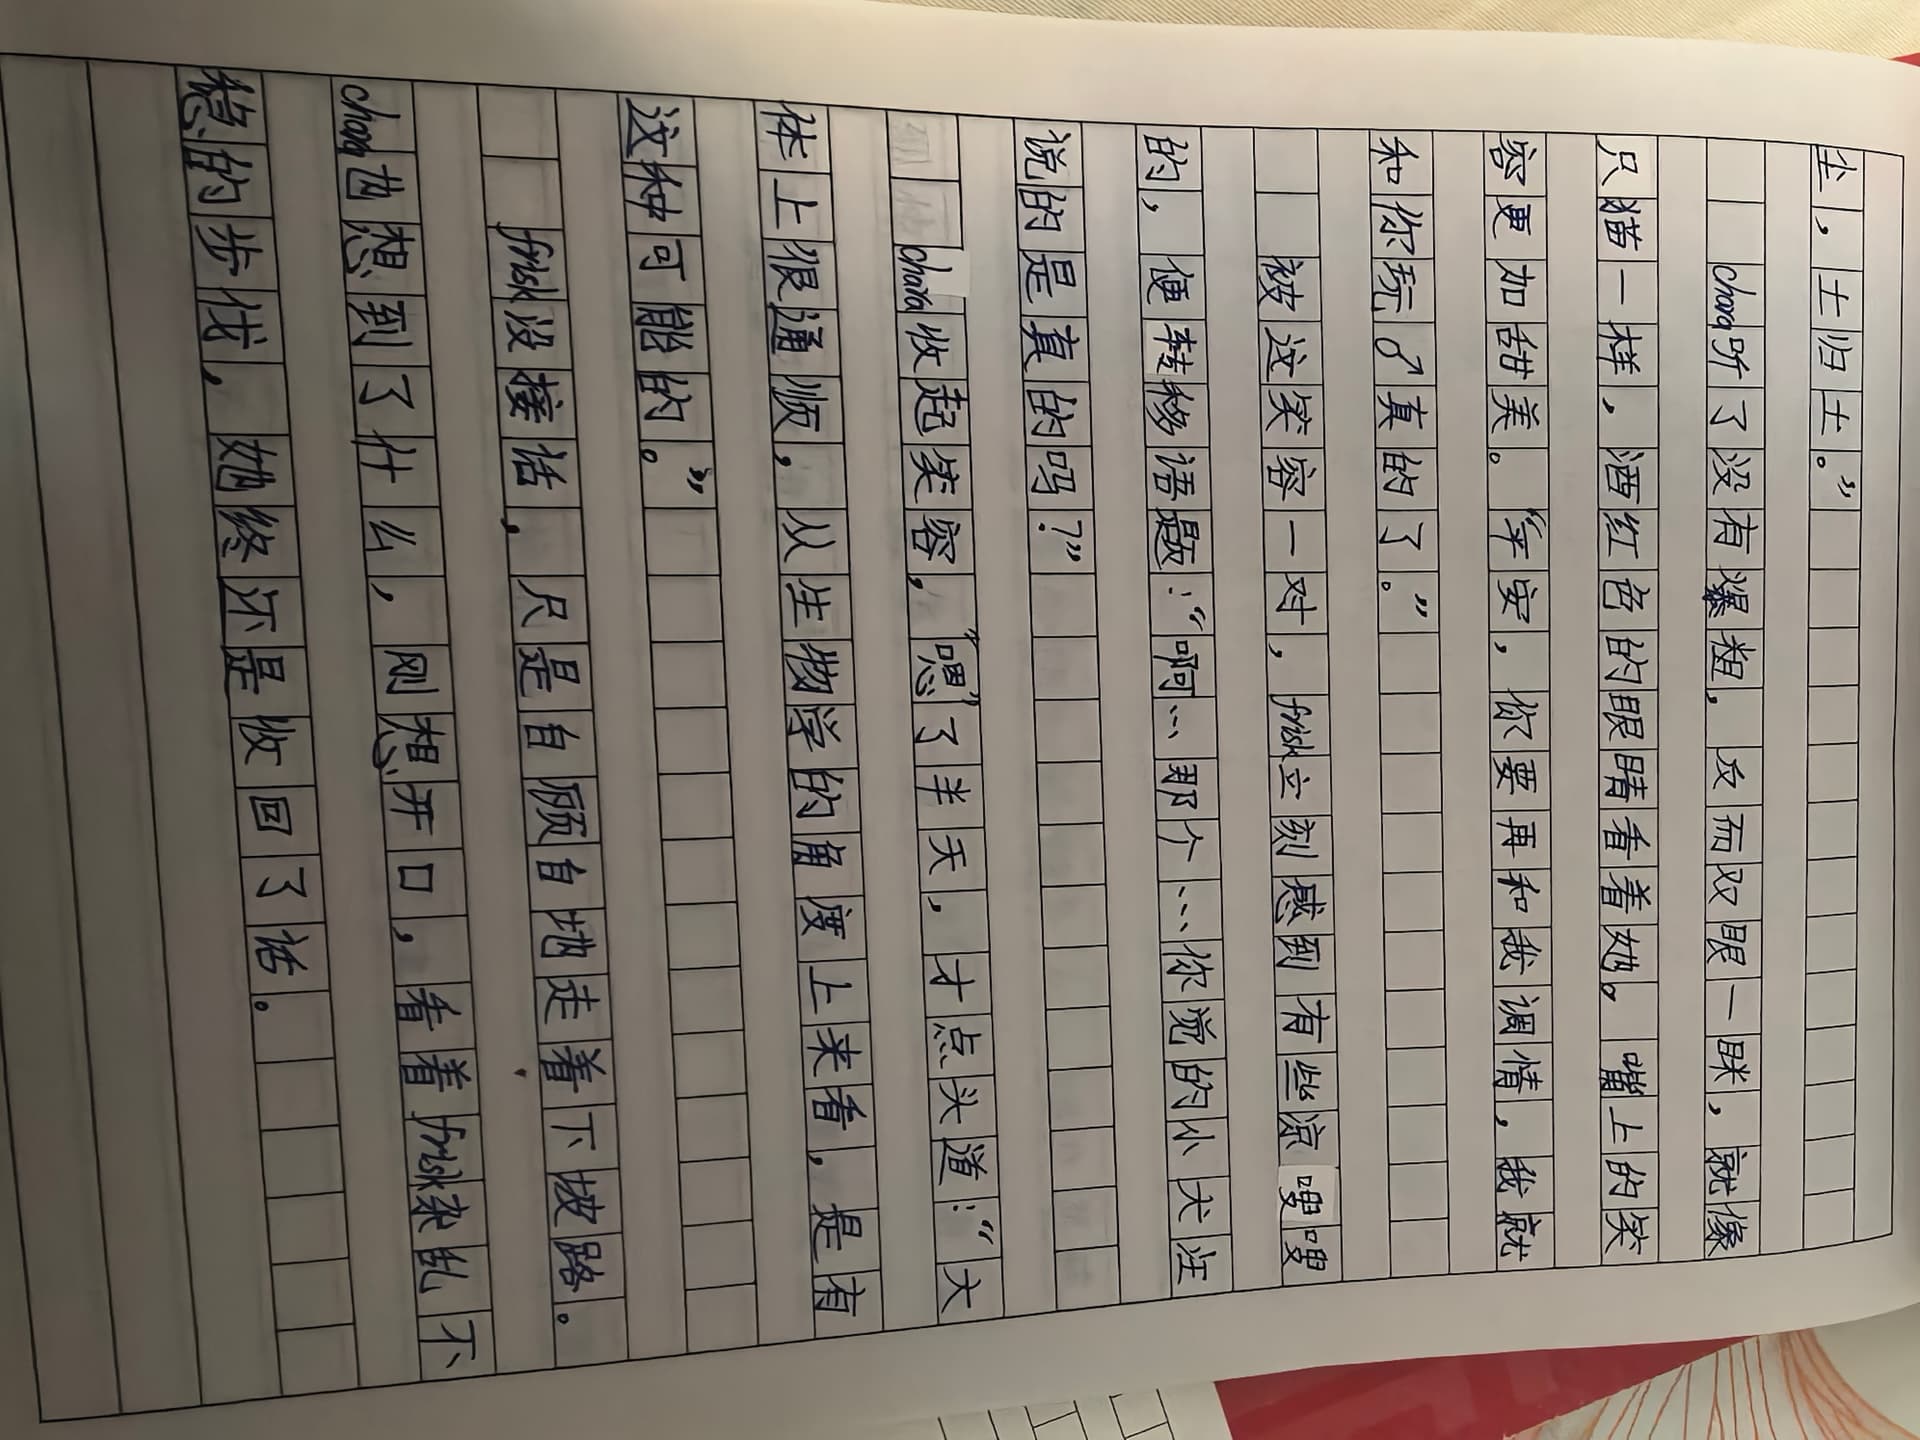 尘，土归土。”
chara听了没有爆粗，反而双眼一眯，就像
只猫一样，酒红色的眼睛看着她。嘴上的笑
容更加甜美。“孚安，你要再和我调情，我就
和你玩♂真的了。”
被这笑容一对，frisk立刻感到有些凉嗖嗖
的，便转移语题：“啊…那个…你觉的小犬汪
说的是真的吗？”
chara收起笑容，“嗯”了半天，才点头道：“大
体上很通顺，从生物学的角度上来看，是有
这种可能的。”
frisk没接话，只是自顾自地走着下坡路。
chara也想到了什么，刚想开口，看着frisk杂乱不
稳的步伐，她终还是收回了话。